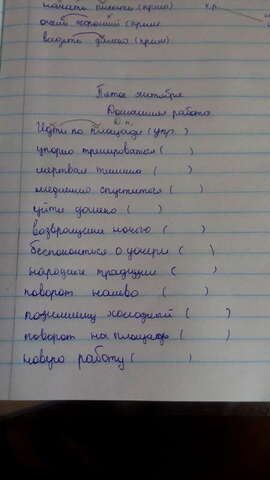 (прим) н.р.
очень хороший (прим
видеть далеко (прим)
Пятое октября
Домашняя работа.
д.п.
Идти по площади (упр.)
упорно тренироваться ( )
мёртвая тишина ( )
медленно спуститься ( )
уйти далеко ( )
возвращение ночью ( )
беспокоиться о дочери ( )
народные традиции ( )
поворот налево ( )
по-зимнему холодный ( )
поворот на площадь ( )
новую работу ( )